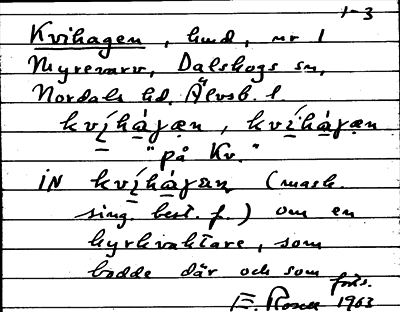 1-3
Kvihagen, hmd, nr 1
Myrevarv, Dalskogs sn,
Nordals hd. Älvsb. l.
kvíhàgæn, kvíhàgæn
"på Kv."
IN kvíhàgan (mask.
sing. best. f.) om en
kyrkvaktare, som
bodde där och som
forts.
E. Rosell 1963